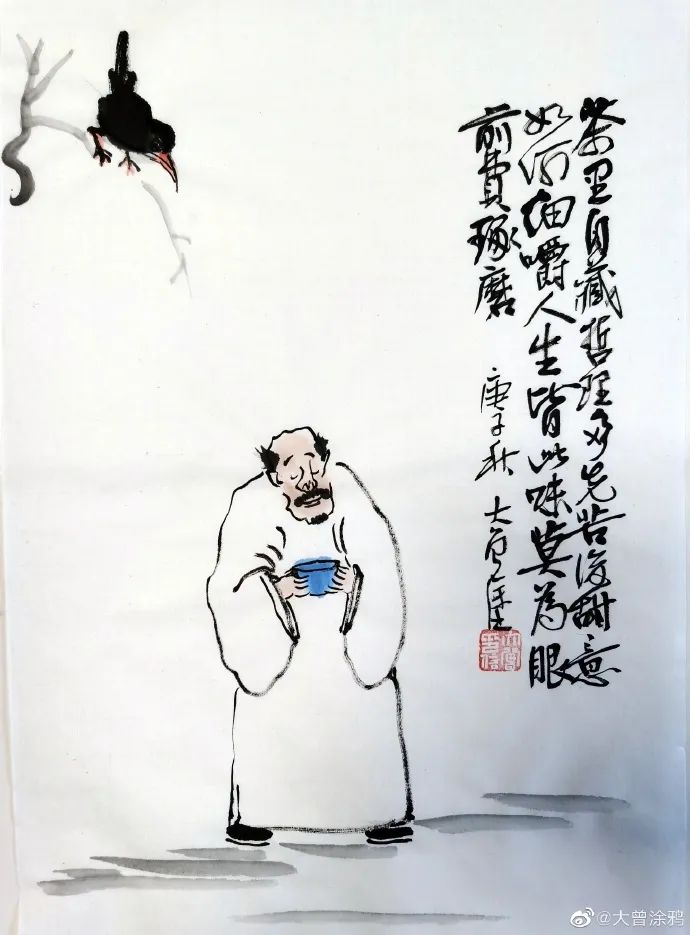 茶里自藏哲理多先苦後甜意
如何細嚼人生皆此味莫為眼
前費琢磨
庚子秋 大曾
@大曾涂鸦